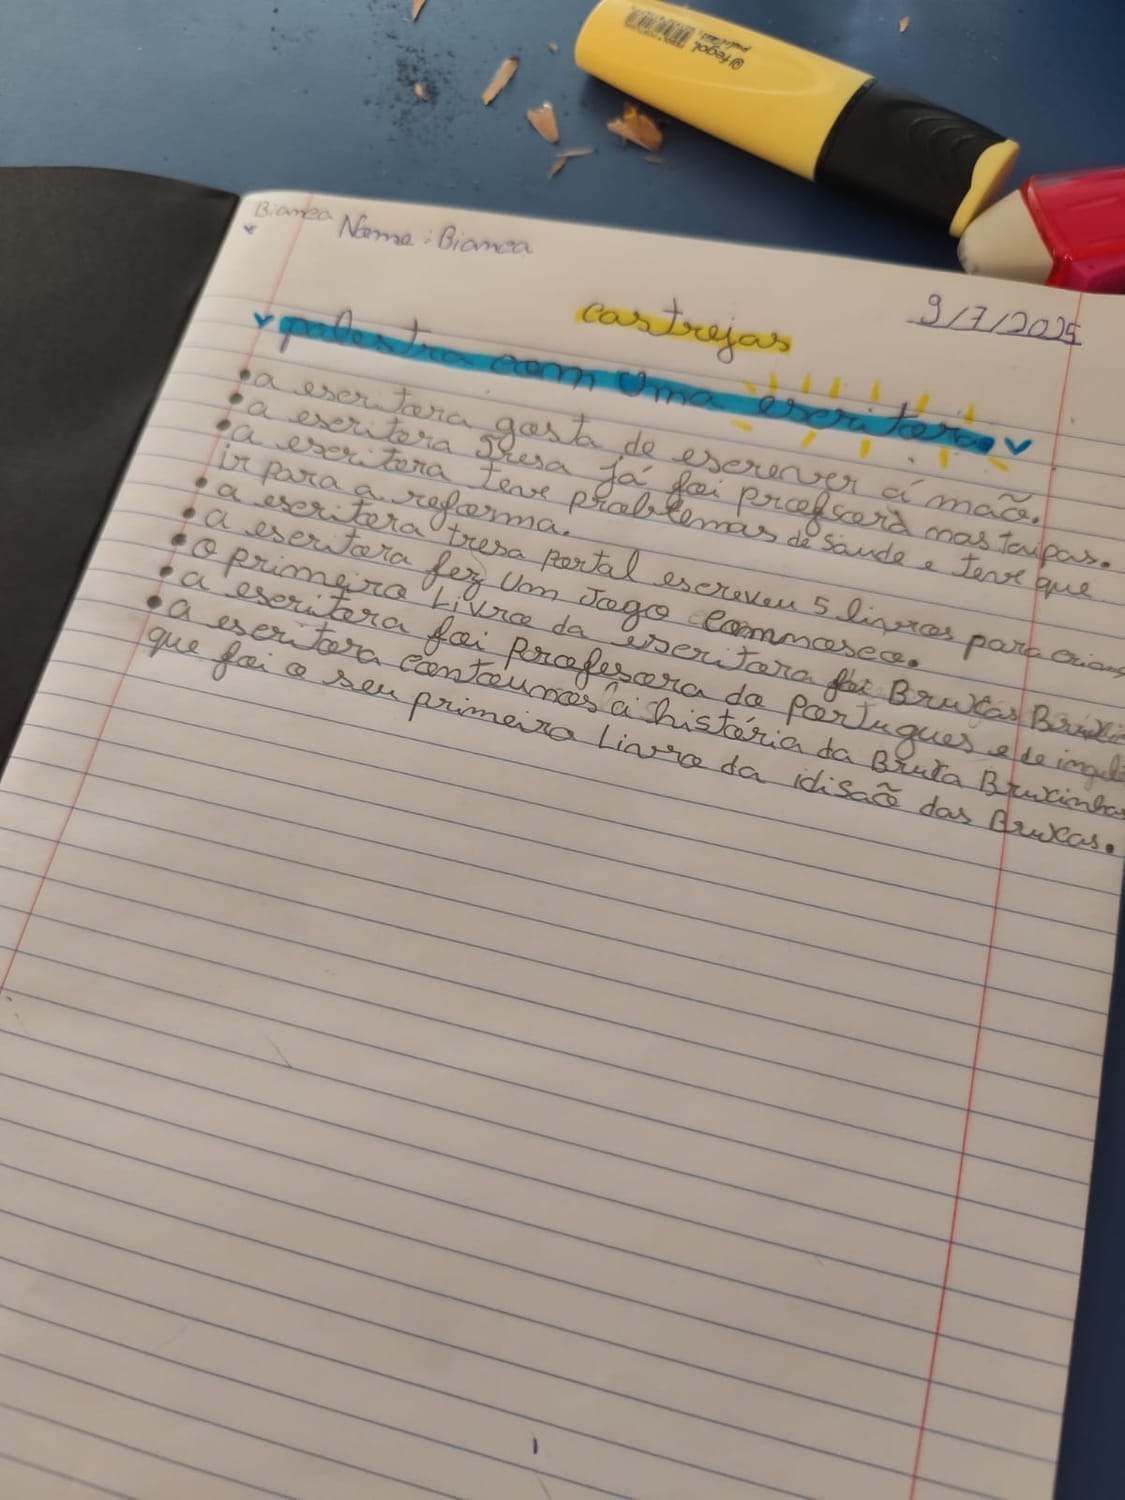 Bianca Nome: Bianca
castrejas 9/7/2025
palestra com uma escritora
•a escritora gosta de escrever á mão.
•a escritora Tresa já foi professora nas taipas.
•a escritora teve problemas de saude e teve que
ir para a reforma.
•a escritora tresa portal escreveu 5 livros para
•a escritora fez um Jogo connosco.
•o primeiro Livro da escritora foi Bruxas
•a escritora foi professora do portugues e de
•a escritora contounos á história da Bruxa Bruxinha
que foi o seu primeiro Livro da idisaõ das Bruxas.